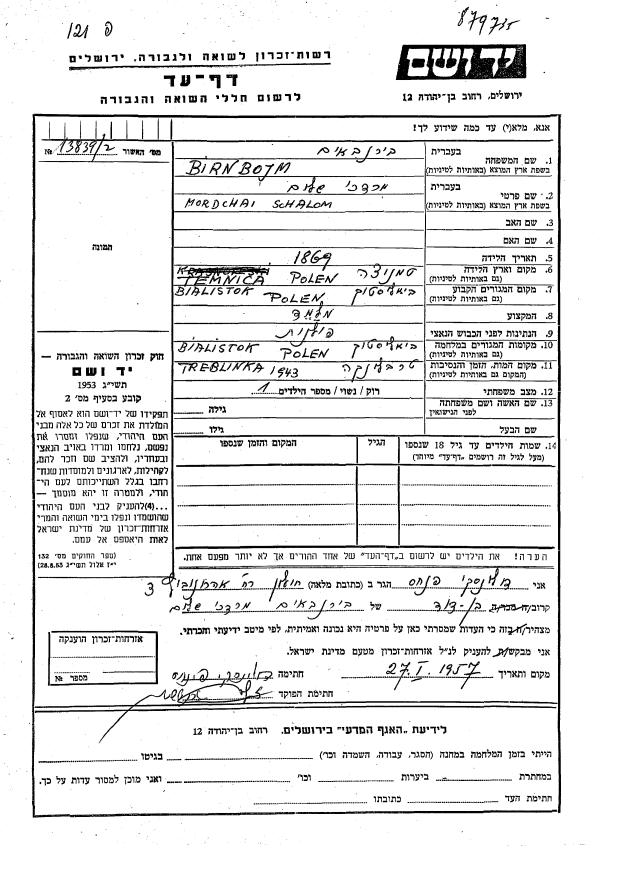 פ 121
879715
רשות-זכרון לשואה ולגבורה, ירושלים
דף-עד
לרשום חללי השואה והגבורה
יד ושם
ירושלים, רחוב בן-יהודה 12
אנא, מלא(י) עד כמה שידוע לך!
מס' האשור 13839/2 №
תמונה
1. שם המשפחה
בעברית בירנבאים
בשפת ארץ המוצא (באותיות לטיניות) BIRNBOJM
2. שם פרטי
בעברית מרדכי שלום
בשפת ארץ המוצא (באותיות לטיניות) MORDCHAI SCHALOM
3. שם האב
4. שם האם
5. תאריך הלידה 1869
6. מקום וארץ הלידה (גם באותיות לטיניות) טמניצה POLEN TEMNICA
7. מקום המגורים הקבוע (גם באותיות לטיניות) ביאליסטוק BIALISTOK POLEN
8. המקצוע מלמד
9. הנתינות לפני הכבוש הנאצי פולנית
10. מקומות המגורים במלחמה (גם באותיות לטיניות) ביאליסטוק BIALISTOK POLEN
11. מקום המות, הזמן והנסיבות (המקום גם באותיות לטיניות) טרבלינקה TREBLINKA 1943
12. מצב משפחתי רוק / נשוי / מספר הילדים 1
13. שם האשה ושם משפחתה לפני הנישואין גילה
שם הבעל גילו
14. שמות הילדים עד גיל 18 שנספו (מעל לגיל זה רושמים "דף-עד" מיוחד)
הגיל
המקום והזמן שנספו
חוק זכרון השואה והגבורה —
יד ושם
תשי"ג 1953
קובע בסעיף מס' 2
תפקידו של יד-ושם הוא לאסוף אל
המולדת את זכרם של כל אלה מבני
העם היהודי, שנפלו ומסרו את
נפשם, נלחמו ומרדו באויב הנאצי
ובעוזריו, ולהציב שם וזכר להם,
לקהילות, לארגונים ולמוסדות שנח־
רבו בגלל השתייכותם לעם היה־
ודי, ולמטרה זו יהא מוסמך —
...(4) להעניק לבני העם היהודי
שהושמדו ונפלו בימי השואה והמרי
אזרחות-זכרון של מדינת ישראל
לאות היאספם אל עמם.
(ספר החוקים מס' 132
י"ז אלול תשי"ג 28.8.53)
הערה! את הילדים יש לרשום ב"דף-העד" של אחד ההורים אך לא יותר מפעם אחת.
אני פנחס הגר ב (כתובת מלאה) חולון רח'
קרוב/ה בן-דוד של בירנבאים מרדכי שלום
מצהיר/ה בזה כי העדות שמסרתי כאן על פרטיה היא נכונה ואמיתית, לפי מיטב ידיעתי והכרתי.
אני מבקש/ת להעניק לנ"ל אזרחות-זכרון מטעם מדינת ישראל.
מקום ותאריך 27.I.1957 חתימה
חתימת הפוקד
אזרחות-זכרון הוענקה
מספר №
לידיעת "האגף המדעי" בירושלים, רחוב בן-יהודה 12
הייתי בזמן המלחמה במחנה (הסגר, עבודה, השמדה וכו') בגיטו
במחתרת ביערות וכו' ואני מוכן למסור עדות על כך.
חתימת העד כתובתו